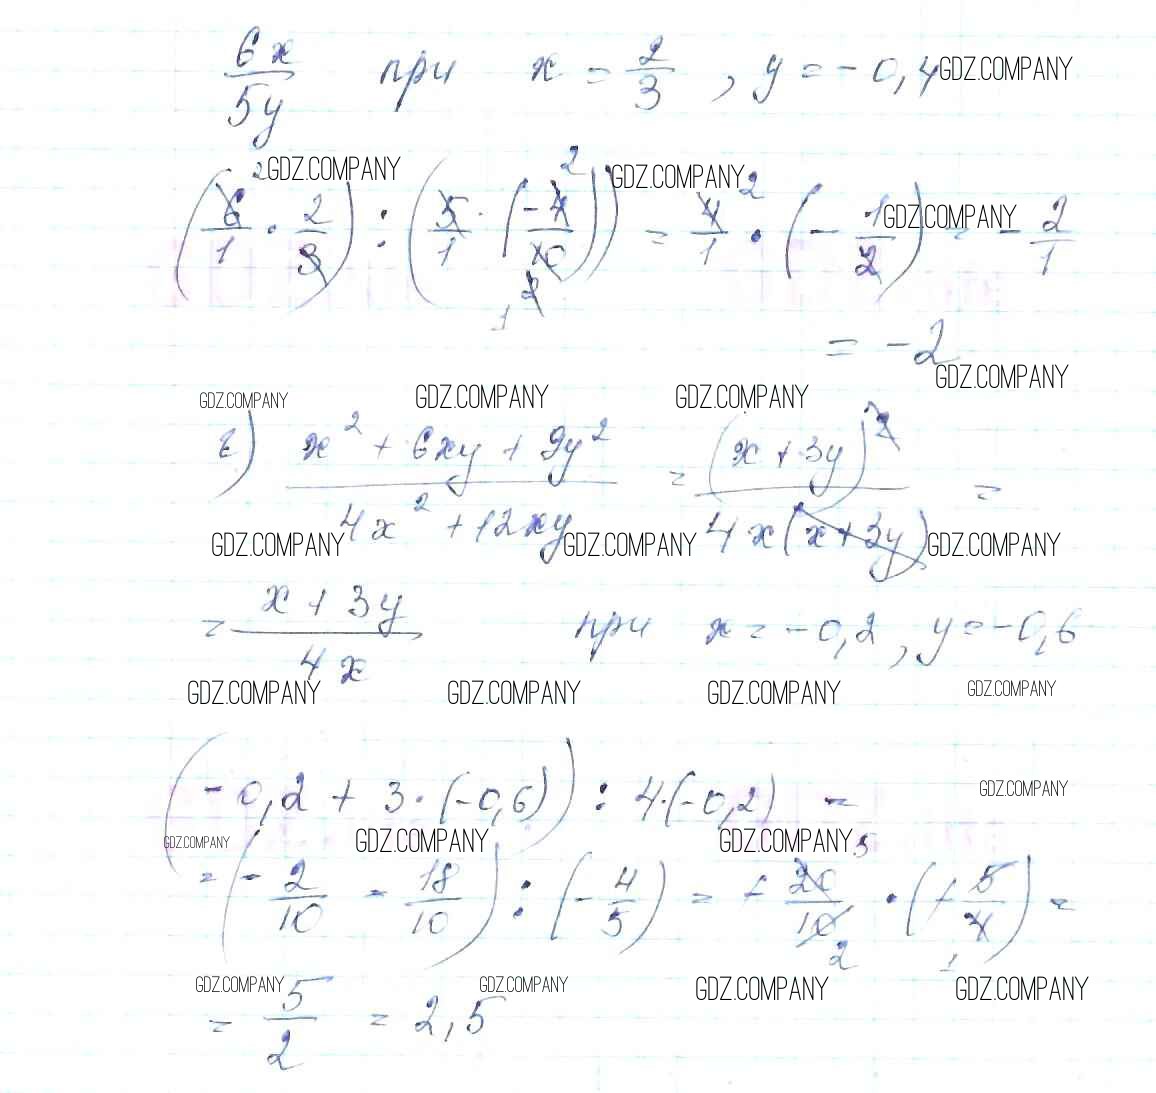 6x/5y при x = 2/3, y = -0,4 GDZ.COMPANY
GDZ.COMPANY GDZ.COMPANY GDZ.COMPANY
(6/1 · 2/3) : (5/1 · (-4/10)) = 4/1 · (-1/2) = -2/1
= -2
GDZ.COMPANY
GDZ.COMPANY GDZ.COMPANY GDZ.COMPANY
г) (x² + 6xy + 9y²)/(4x² + 12xy) = (x + 3y)²/(4x(x + 3y)) =
GDZ.COMPANY GDZ.COMPANY GDZ.COMPANY
= (x + 3y)/4x при x = -0,2, y = -0,6
GDZ.COMPANY GDZ.COMPANY GDZ.COMPANY GDZ.COMPANY
(-0,2 + 3·(-0,6)) : 4·(-0,2) =
GDZ.COMPANY
GDZ.COMPANY GDZ.COMPANY GDZ.COMPANY
= (-2/10 - 18/10) : (-4/5) = +20/10 · (+5/4) =
GDZ.COMPANY GDZ.COMPANY GDZ.COMPANY GDZ.COMPANY
= 5/2 = 2,5